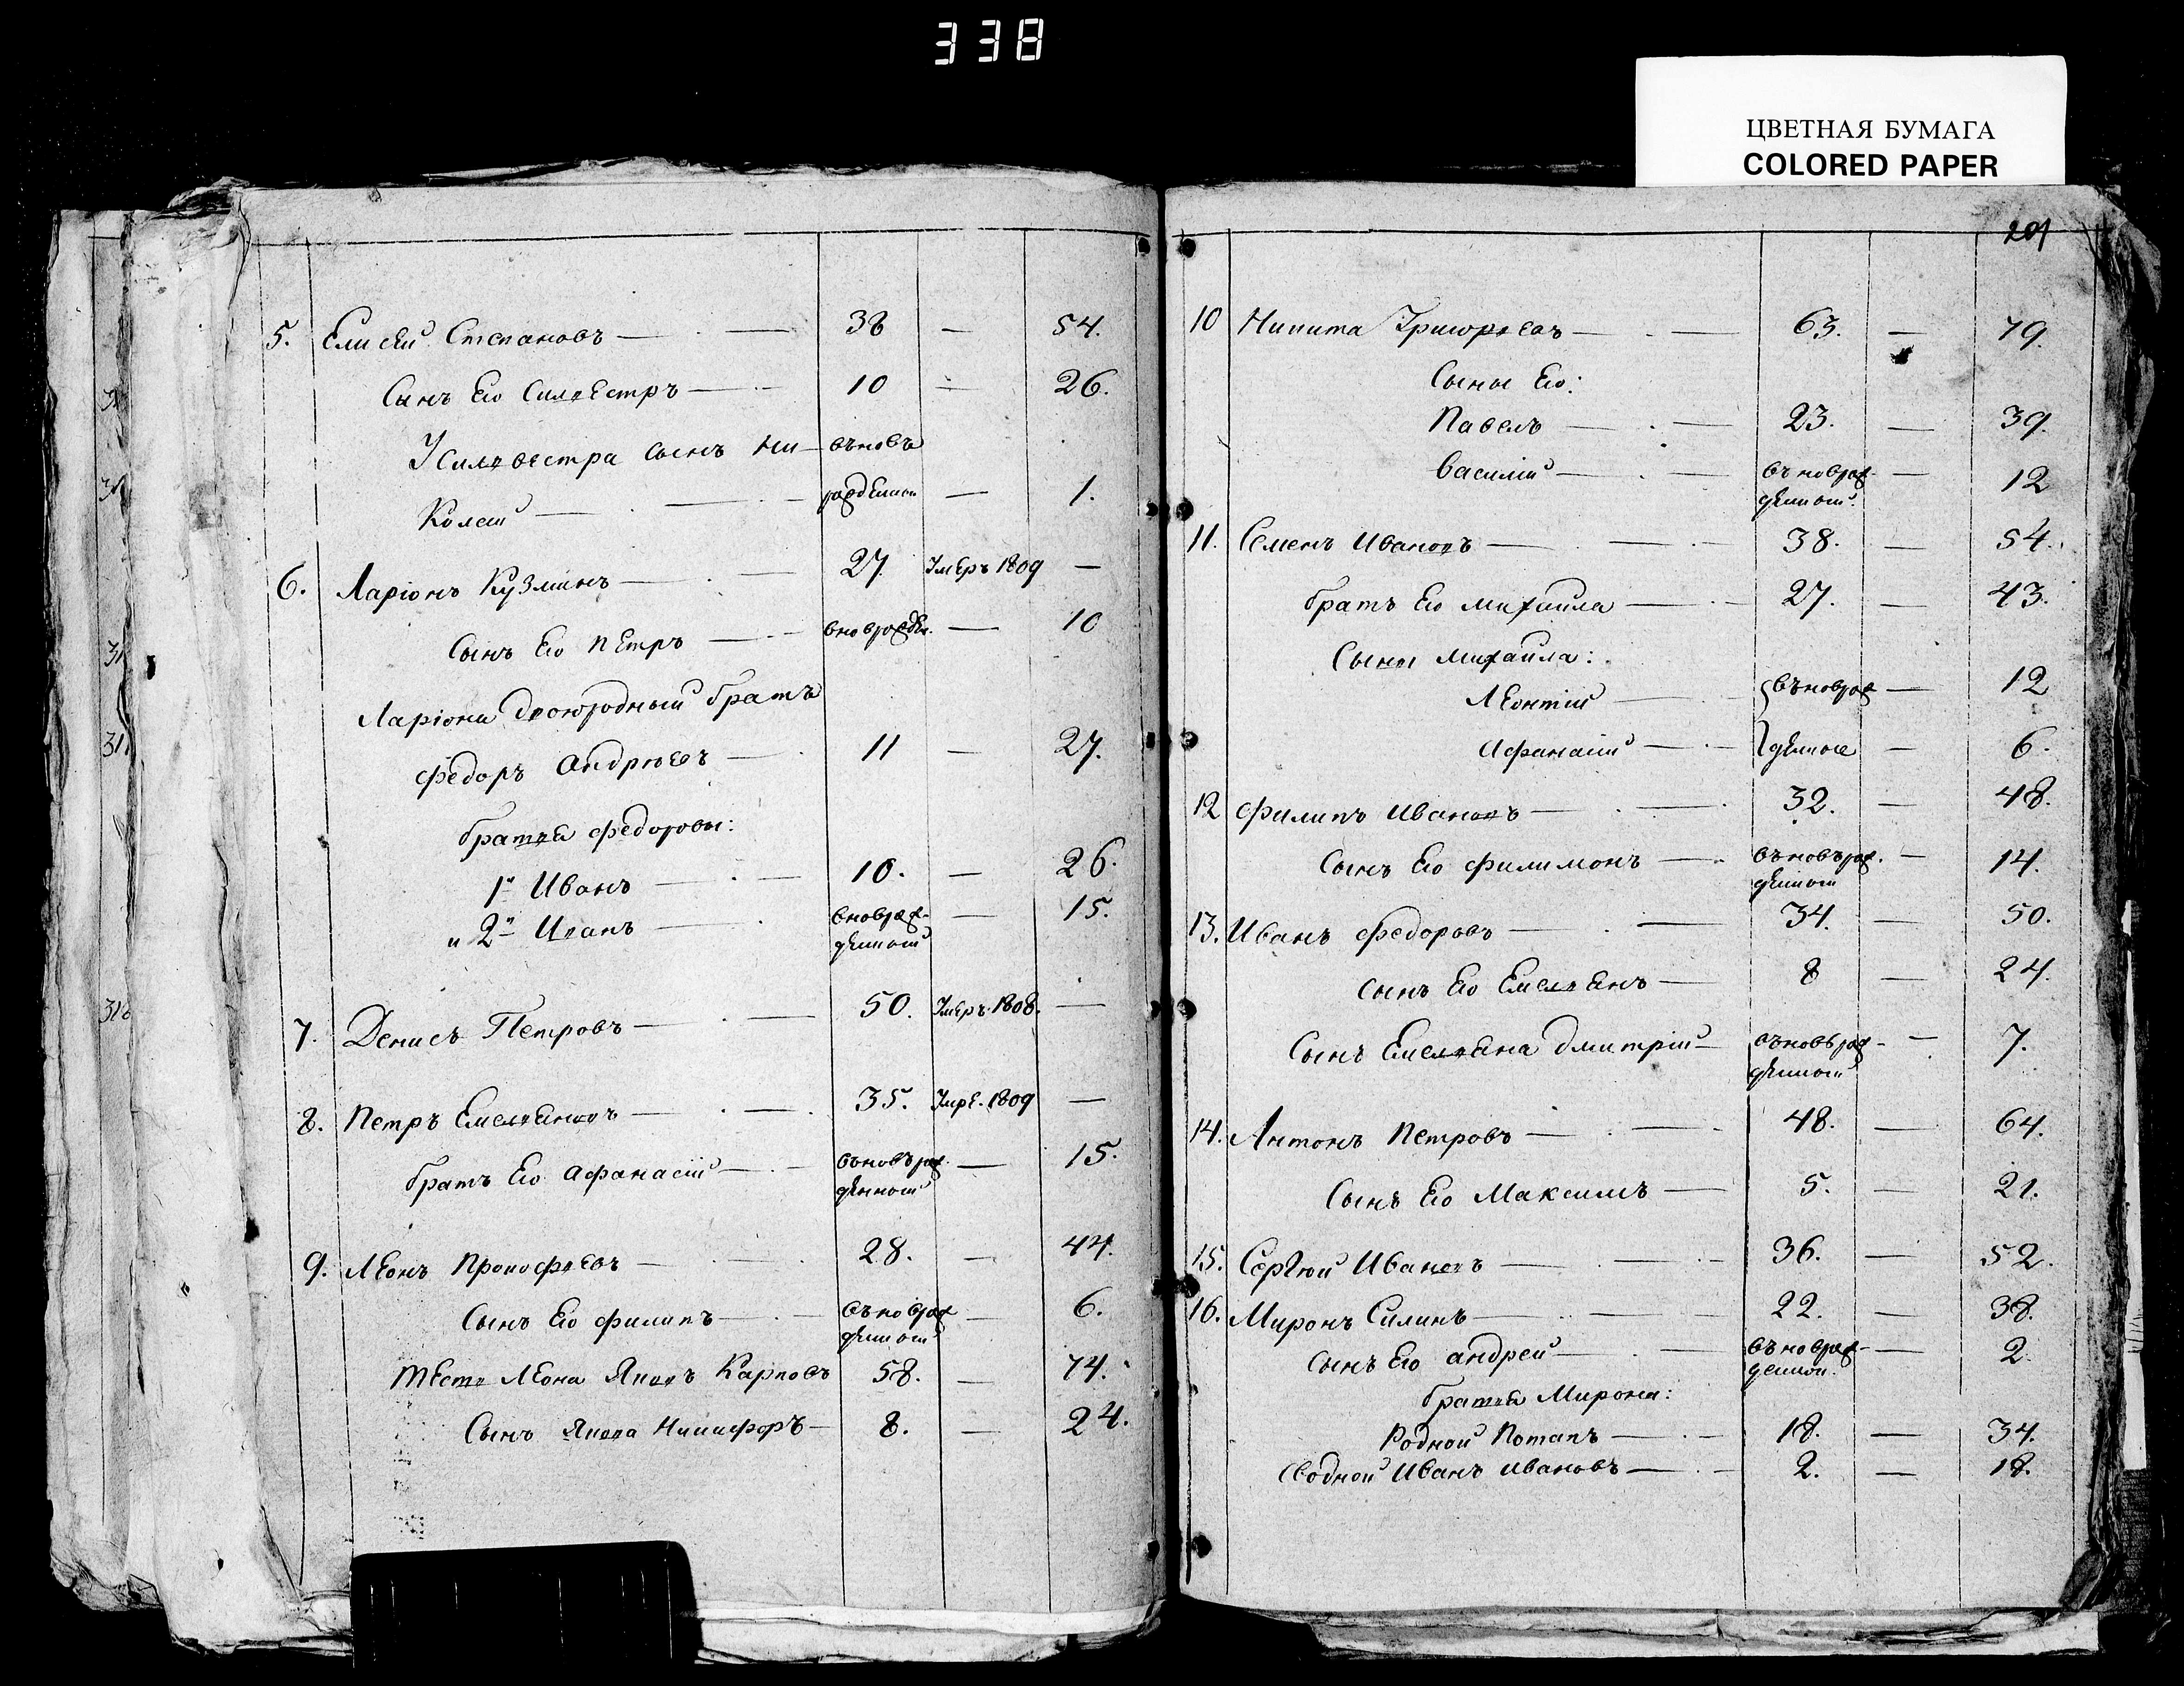 338
ЦВЕТНАЯ БУМАГА
COLORED PAPER
5. Елисей Степановъ — 38 — 54.
Сынъ Его Силвестръ — 10 — 26.
У Силвестра Сынъ Ни- въновь
Колай — рожденной — 1.
6. Ларіонъ Кузминъ — 27. Умеръ 1809 —
Сынъ Его Петръ — вноврожден. — 10
Ларіона двоюродный братъ
Федоръ Андрѣевъ — 11 — 27.
братья Федоровы:
1й Иванъ — 10. — 26.
и 2й Иванъ — вноврож- — 15.
денной
7. Денисъ Петровъ — 50. Умеръ 1808. —
8. Петръ Емельяновъ — 35. Умре. 1809 —
братъ Его Афанасій — вьновьрож- — 15.
денной
9. Леонъ Прокофьевъ — 28. — 44.
Сынъ Его Филипъ — вьноврож — 6.
денной
тесть Леона Яковъ Карповъ 58. — 74.
Сынъ Якова Никифоръ — 8. — 24.
201
10 Никита Григорьевъ — 63. — 79.
Сыны Его:
Павелъ — 23. — 39.
Василій — вьноврож- — 12
денной.
11. Семенъ Ивановъ — 38. — 54.
братъ Его Михайла — 27. — 43.
Сыны Михайла:
Леонтій — вьноврож — 12
Афанасій — денные — 6.
12 Филипъ Ивановъ — 32. — 48.
Сынъ Его Филимонъ — вьновьрож. — 14.
денной
13. Иванъ Федоровъ — 34. — 50.
Сынъ Его Емельянъ — 8 — 24.
Сынъ Емельяна Дмитрій — вьновьрож- — 7.
денной
14. Антонъ Петровъ — 48. — 64.
Сынъ Его Максимъ — 5. — 21.
15. Сергѣй Ивановъ — 36. — 52.
16. Миронъ Силинъ — 22. — 38.
Сынъ Его Андрей — вьноврож- — 2.
денной.
братья Мирона:
Родной Потапъ — 18. — 34.
Сводной Иванъ Ивановъ — 2. — 18.